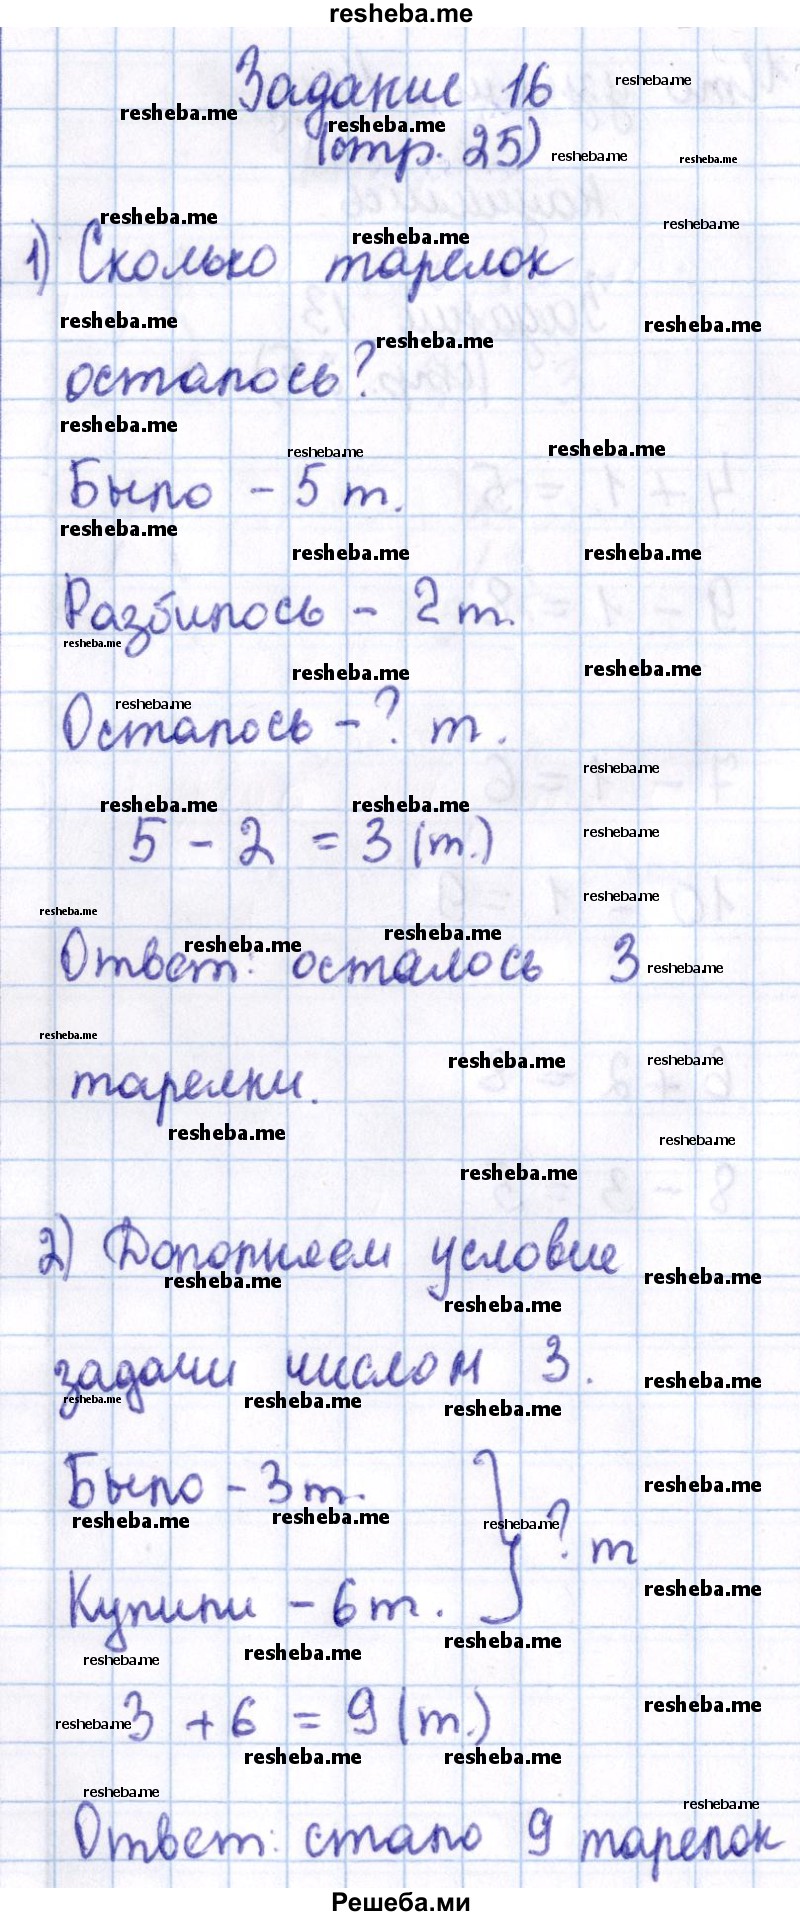 resheba.me
Задание 16
(стр. 25)
1) Сколько тарелок
осталось?
Было - 5 т.
Разбилось - 2 т.
Осталось - ? т.
5 - 2 = 3 (т.)
Ответ: осталось 3
тарелки.
2) Дополняем условие
задачи числом 3.
Было - 3 т.
} ? т
Купили - 6 т.
3 + 6 = 9 (т.)
Ответ: стало 9 тарелок
Решеба.ми